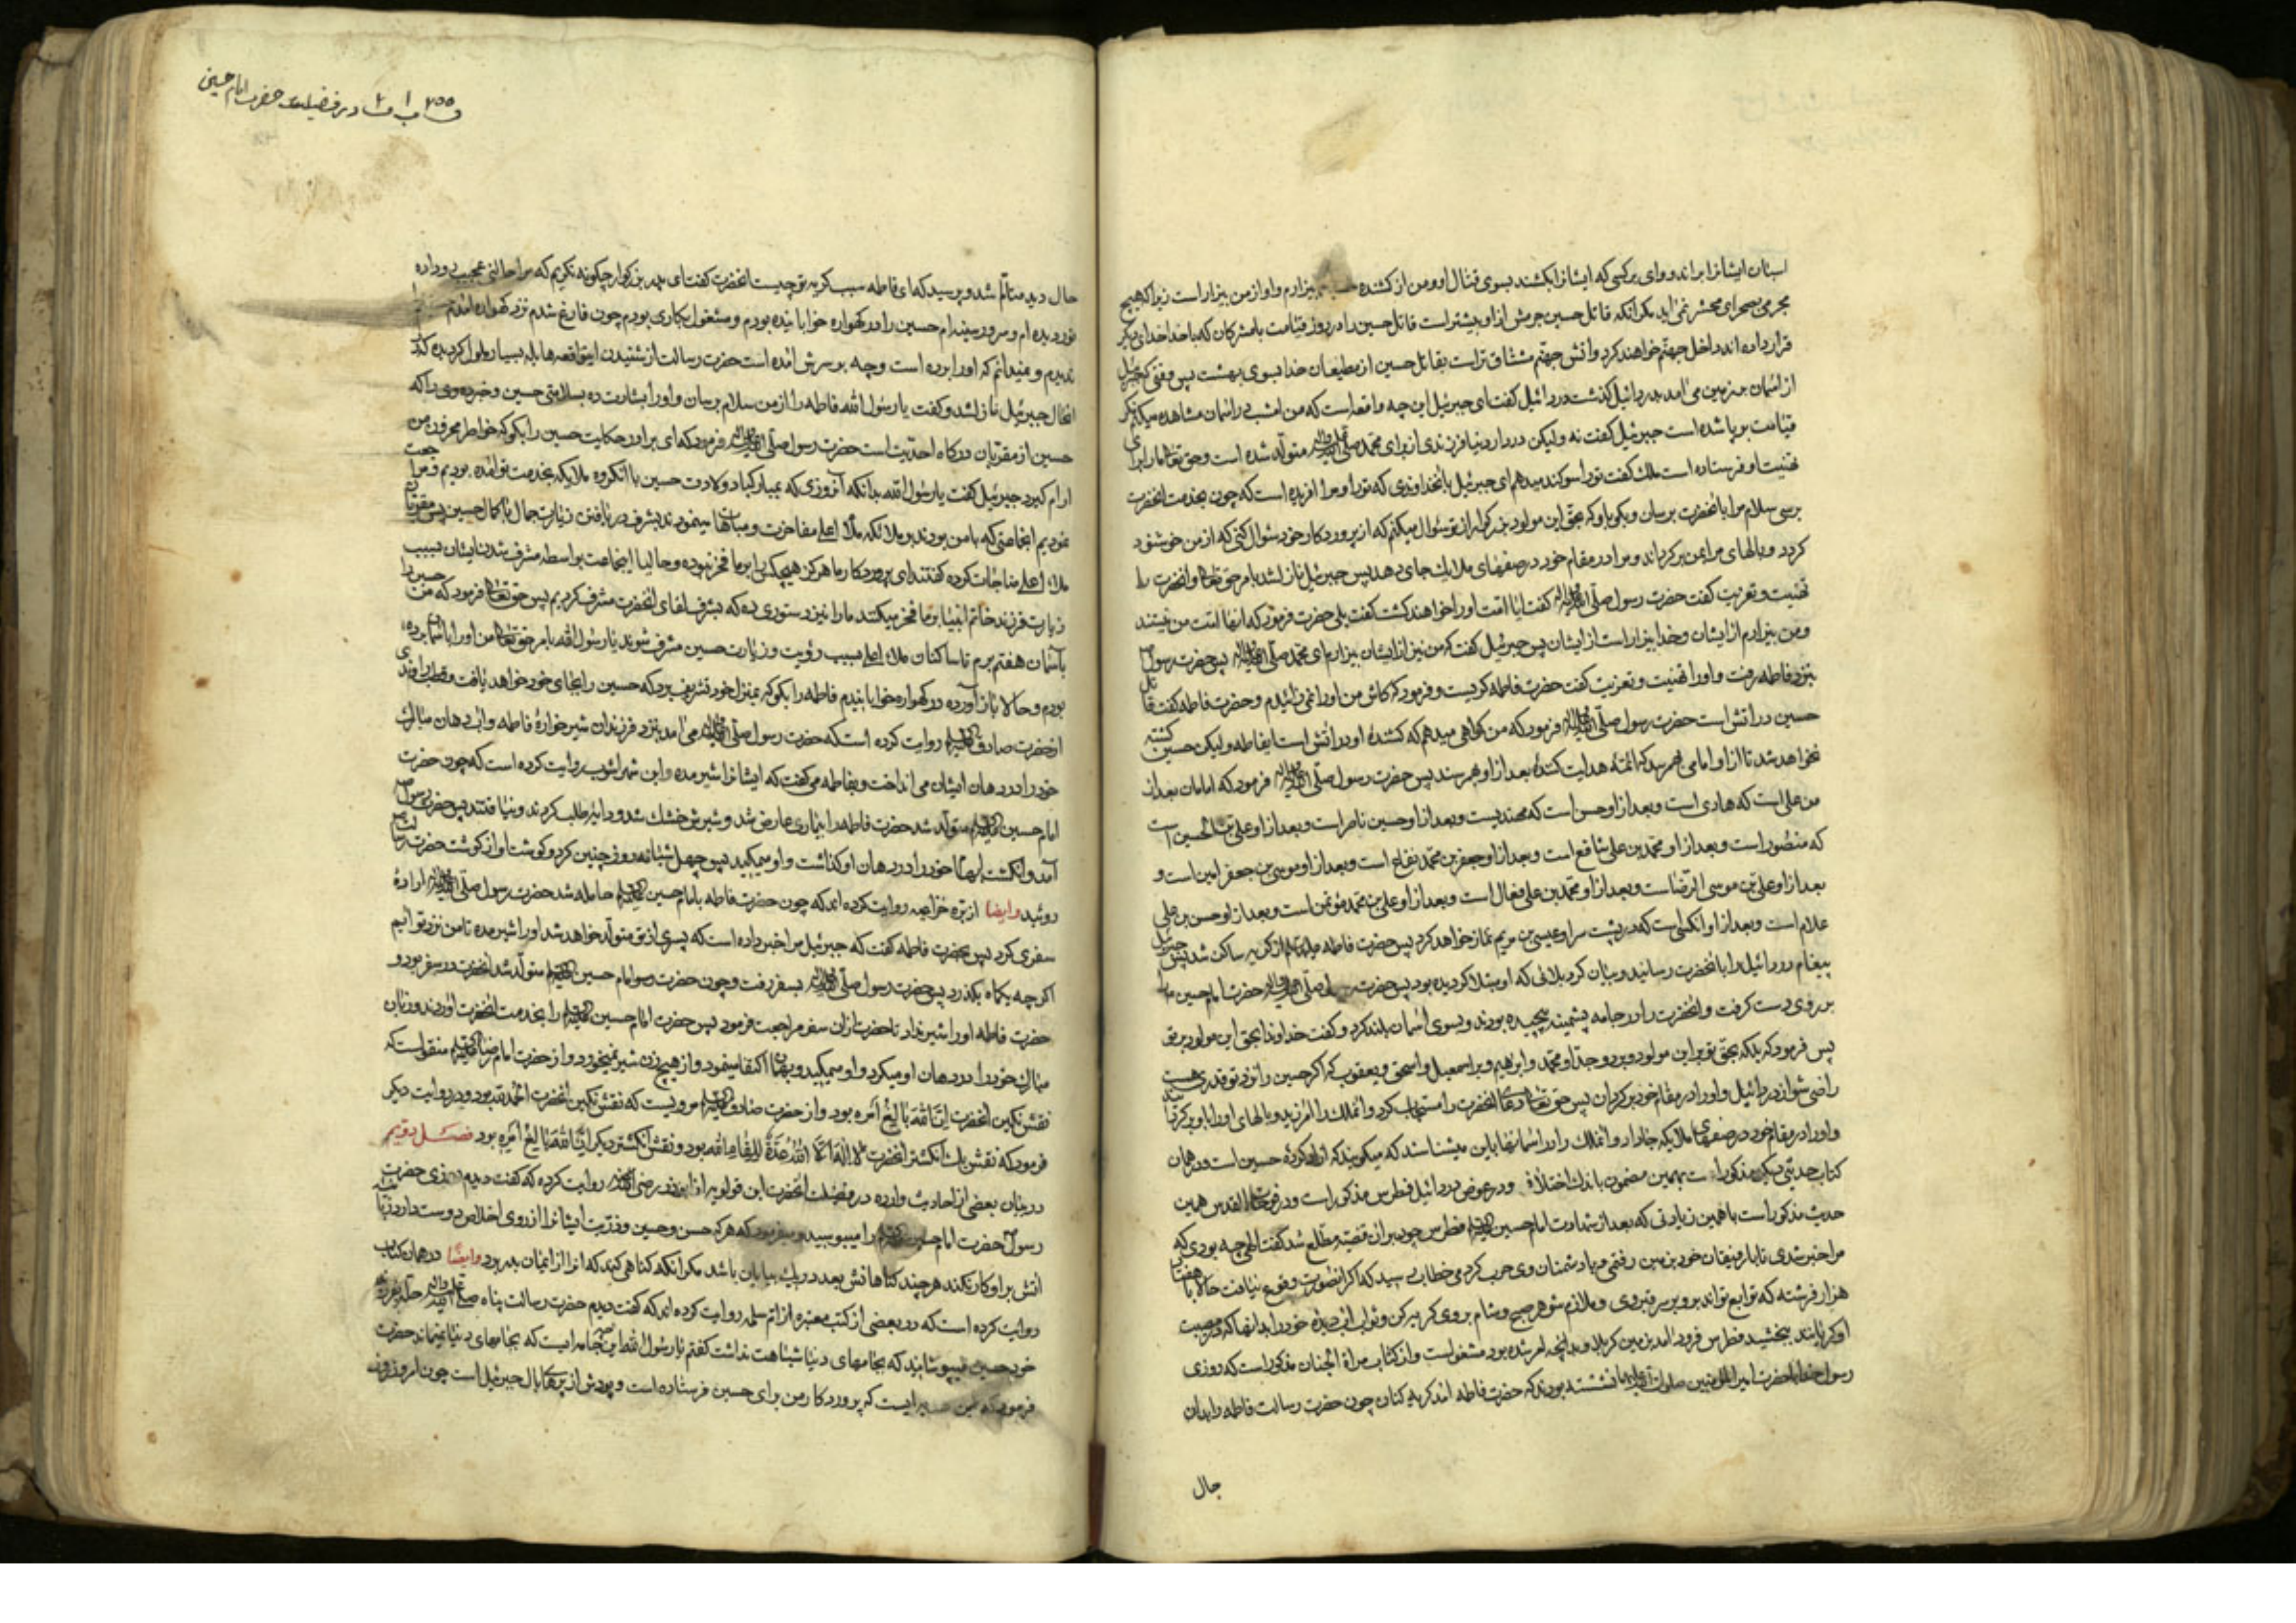 اسبان ایشانرا براند و وای بر کسی که ایشانرا بکشند بسوی قتال او و من از کشنده حسین بیزارم و او از من بیزار است زیرا که هیچ
مجرمی بصحرای محشر نمی اید مکر انکه قاتل حسین جرمش از او بیشتر است قاتل حسین را در روز قیامت با مشرکان که با خدا خدای دیکر
قرار داده اند داخل جهنم خواهند کرد و اتش جهنم مشتاق تر است بقاتل حسین از مطیعان خدا بسوی بهشت پس وقتی که جبرئیل
از اسمان بزمین می امد بدردائیل کذشت دردائیل کفت ای جبرئیل این چه واقعه است که من امشب در اسمان مشاهده میکنم مکر
قیامت بر پا شده است جبرئیل کفت نه ولیکن در دار دنیا فرزندی از برای محمد صلی الله علیه واله متولد شده است و حق تعالی مارا برای
تهنیت او فرستاده است ملک کفت تو را سوکند میدهم ای جبرئیل بانخداوندی که تو را و مرا افریده است که چون بخدمت انحضرت
برسی سلام مرا بانحضرت برسان و بکو باو که بحق این مولود بزرکوار از تو سؤال میکنم که از پروردکار خود سؤال کنی که از من خوشنود
کردد و بالهای مرا بمن برکرداند و مرا در مقام خود در صفهای ملایک جای دهد پس جبرئیل نازل شد بامر حق تعالی و انحضرت را
تهنیت و تعزیت کفت حضرت رسول صلی الله علیه واله کفت ایا امت او را خواهند کشت کفت بلی حضرت فرمود که انها امت من نیستند
و من بیزارم از ایشان و خدا بیزار است از ایشان پس جبرئیل کفت که من نیز از ایشان بیزارم ای محمد صلی الله علیه واله پس حضرت رسول
بنزد فاطمه رفت و او را تهنیت و تعزیت کفت حضرت فاطمه کریست و فرمود که کاش من او را نمی زائیدم و حضرت فاطمه کفت قاتل
حسین در اتش است حضرت رسول صلی الله علیه واله فرمود که من کواهی میدهم که کشندهٔ او در اتش است ایفاطمه ولیکن حسین کشته
نخواهد شد تا از او امامی بهمرسد که ائمهٔ هدایت کنندهٔ بعد از او بهم رسند پس حضرت رسول صلی الله علیه واله فرمود که امامان بعد از
من علی است که هادی است و بعد از او حسن است که مهتدیست و بعد از او حسین ناصر است و بعد از او علی بن الحسین است
که منصور است و بعد از او محمد بن علی شافع است و بعد از او جعفر بن محمد نفاع است و بعد از او موسی بن جعفر امین است و
بعد از او علی بن موسی الرضا است و بعد از او محمد بن علی فعال است و بعد از او علی بن محمد مؤتمن است و بعد از او حسن بن علی
علام است و بعد از او انکسی است که در پشت سر او عیسی بن مریم نماز خواهد کرد پس حضرت فاطمه علیها السلام از کریه ساکن شد پس جبرئیل
پیغام دردائیل را بانحضرت رسانید و بیان کرد بلائی که او مبتلا کردیده بود پس حضرت رسول صلی الله علیه واله حضرت امام حسین را
بر روی دست کرفت و انحضرت را در جامه پشمینه پیچیده بودند و بسوی اسمان بلند کرد و کفت خداوندا بحق این مولود بر تو
پس فرمود که بلکه بحق تو بر این مولود و بر جد او محمد و ابراهیم و بر اسمعیل و اسحق و یعقوب که اکر حسین را نزد تو قدری هست
راضی شو از دردائیل و او را در مقام خود برکردان پس حق تعالی دعای انحضرت را مستجاب کرد و انملک را امرزید و بالهای او را باو برکردانید
و او را در مقام خود در صفهای ملایکه جا داد و انملک را در اسمانها باین میشناسند که میکویند که ازاد کردهٔ حسین است و در همان
کتاب حدیثی دیکر مذکور است بهمین مضمون باندک اختلافی و در عوض دردائیل فطرس مذکور است و در فوحات القدس همین
حدیث مذکور است با همین زیادتی که بعد از شهادت امام حسین علیه السلام فطرس چون بر ان قضیه مطلع شد کفت الهی چه بودی که
مرا خبر شدی تا با رفیقان خود بزمین رفتمی و با دشمنان وی حرب کردمی خطاب رسید که اکر انصورت وقوع نیافت حالا با هفتاد
هزار فرشته که توابع تواند برو بر سر قبر وی و ملازم شو هر صبح و شام بر وی کریه کن و ثواب اب دیدهٔ خود را بدانها که در مصیبت
او کریانند ببخشید فطرس فرود امد بزمین کربلا و بدانچه امر شده بود مشغولست و از کتاب مراة الجنان مذکور است که روزی
رسول خدا با حضرت امیر المؤمنین صلوات الله علیهما نشسته بودند که حضرت فاطمه امد کریه کنان چون حضرت رسالت فاطمه را بدان
حال
ف ۲۵۵ ب ۱ ف ۲ در فضیلت حضرت امام حسین
حال دید متالم شد و پرسید که ای فاطمه سبب کریه تو چیست انحضرت کفت ای پدر بزرکوار چکونه نکریم که مرا حالتی عجیب رو داده
نور دیده ام و سرور سینه ام حسین را در کهواره خوابانیده بودم و مشغول بکاری بودم چون فارغ شدم نزد کهواره امدم
ندیدم و نمیدانم که او را برده است و چه بر سرش امده است حضرت رسالت از شنیدن اینواقعه هایله بسیار ملول کردید که در
انحال جبرئیل نازل شد و کفت یا رسول الله فاطمه را از من سلام برسان و او را بشارت ده بسلامتی حسین و خبر ده وی را که
حسین از مقربان درکاه احدیت است حضرت رسول صلی الله علیه واله فرمود که ای برادر حکایت حسین را بکو که خواطر محزون من
ارام کیرد جبرئیل کفت یا رسول الله بدانکه آنروزی که بمبارکباد ولادت حسین با انکروه ملایکه بخدمت تو امده بودیم و مراجعت
نمودیم انجماعتی که با من بودند بر ملائکه ملأ اعلی مفاخرت و مباهات مینمودند بشرف دریافتن زیارت جمال با کمال حسین پس مقربان
ملاء اعلی مناجات کرده کفتند ای پروردکار ما هرکز هیچکس را بر ما فخر نبوده و حالیا اینجماعت بواسطه مشرف شدن ایشان بسبب
زیارت فرزند خاتم انبیا بر ما فخر میکنند ما را نیز دستوری ده که بشرف لقای انحضرت مشرف کردیم پس حق تعالی فرمود که من حسین را
بآسمان هفتم برم تا ساکنان ملاء اعلی بسبب رؤیت و زیارت حسین مشرف شوند یا رسول الله بامر حق تعالی من او را باسمان برده
بودم و حالا باز آورده در کهواره خوابانیدم فاطمه را بکو که بمنزل خود تشریف برد که حسین را بجای خود خواهد یافت و قطب راوندی
از حضرت صادق علیه السلام روایت کرده است که حضرت رسول صلی الله علیه واله می امد بنزد فرزندان شیر خوارهٔ فاطمه و اب دهان مبارک
خود را در دهان ایشان می انداخت و بفاطمه می کفت که ایشانرا شیر مده و ابن شهراشوب روایت کرده است که چون حضرت
امام حسین علیه السلام متولد شد حضرت فاطمه را بیماری عارض شد و شیرش خشک شد و دایه طلب کردند و نیافتند پس حضرت رسول
آمد و انکشت ابهام خود را در دهان او کذاشت و او میمکید پس چهل شبانه روز چنین کرد و کوشت او از کوشت حضرت رسالت
روئید وایضا از بره خزاعیه روایت کرده اند که چون حضرت فاطمه بامام حسین علیه السلام حامله شد حضرت رسول صلی الله علیه واله ارادهٔ
سفری کرد پس بحضرت فاطمه کفت که جبرئیل مرا خبر داده است که پسری از تو متولد خواهد شد او را شیر مده تا من نزد تو آیم
اکرچه یکماه بکذرد پس حضرت رسول صلی الله علیه واله بسفر رفت و چون حضرت امام حسین علیه السلام متولد شد انحضرت در سفر بود و
حضرت فاطمه او را شیر نداد تا حضرت از ان سفر مراجعت فرمود پس حضرت امام حسین علیه السلام را بخدمت انحضرت اوردند و زبان
مبارک خود را در دهان او میکرد و او میمکید و بهمان اکتفا مینمود و از هیچ زن شیر نمیخورد و از حضرت امام رضا علیه السلام منقولست که
نقش نکین انحضرت اِنَّ اللهَ بَالِغُ اَمْرِهِ بود و از حضرت صادق علیه السلام مرویست که نقش نکین انحضرت الحمد لله بود و در روایت دیکر
فرمود که نقش یک انکشتر انحضرت لَا اِلٰهَ اِلَّا اللهُ عُدَّةٌ لِلِقَاءِ الله بود و نقش انکشتر دیکر اِنَّ اللهَ بَالِغُ اَمْرِهِ بود فصل دویم
در بیان بعضی از احادیث وارده در فضیلت انحضرت ابن قولویه از ابوذر رضی الله عنه روایت کرده که کفت دیدم روزی حضرت
رسول حضرت امام حسین علیه السلام را میبوسید و میفرمود که هر که حسن و حسین و ذریت ایشانرا از روی اخلاص دوست دارد زبانه
اتش بر او کار نکند هر چند کناهانش بعدد ریک بیابان باشد مکر انکه کناهی کند که انرا از ایمان بدر برد وایضا در همان کتاب
روایت کرده است که در بعضی از کتب معتبره از ام سلمه روایت کرده اند که کفت دیدم حضرت رسالت پناه صلی الله علیه واله حله بفرزند
خود حسین میپوشانید که بجامهای دنیا شباهت نداشت کفتم یا رسول الله این چه جامه ایست که بجامهای دنیا نمیماند حضرت
فرمود که این ایست که پروردکار من برای حسین فرستاده است و پودش از پرهای بال جبرئیل است چون امروز روز